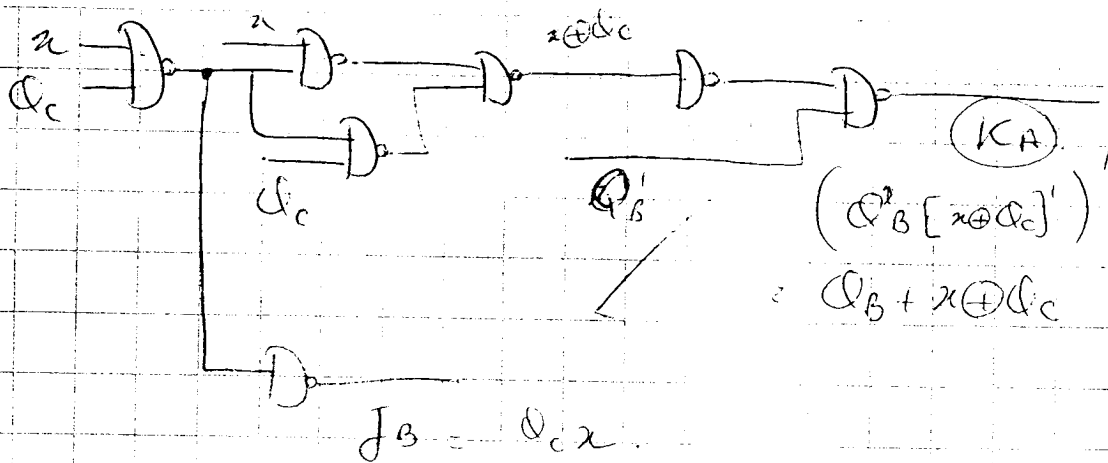 x
x
x⊕Qc
Qc
Qc
Q'B
KA
(Q'B[x⊕Qc]')'
= QB + x⊕Qc
JB = Qc x.